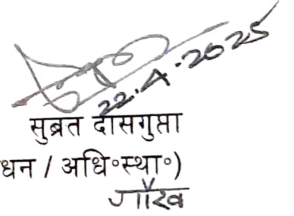 22.4.2025
सुब्रत दासगुप्ता
धन / अधि॰स्था॰)
गौरव